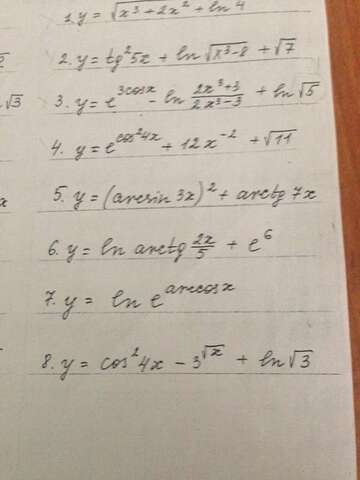 1. y = √(x³ + 2x² + ln 4)
2. y = tg²5x + ln √(x³-8) + √7
3. y = e^(3cosx) - ln (2x³+3)/(2x³-3) + ln √5
4. y = e^(cos²4x) + 12x⁻² + √11
5. y = (arcsin 3x)² + arctg 7x
6. y = ln arctg 2x/5 + e⁶
7. y = ln e^(arccosx)
8. y = cos²4x - 3^(√x) + ln √3
√3
x